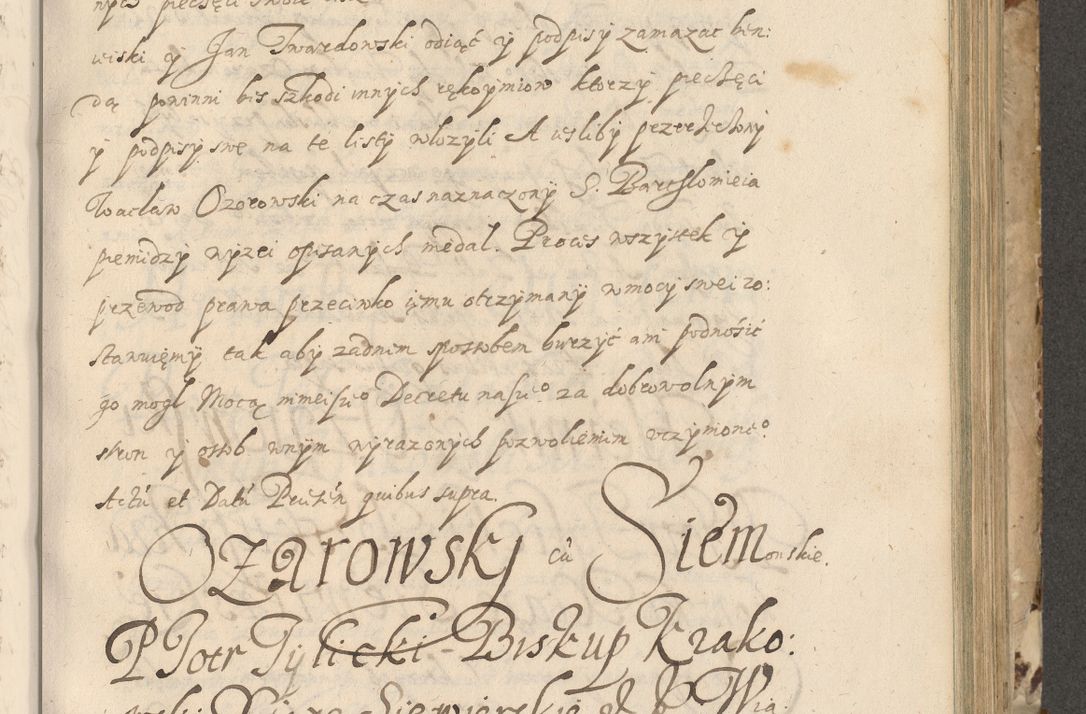 wiski y Jan Twardowski odiąć y podpisy zamazac ben:
dą powinni bis szkodi innych rękoymiow ktorzy piechęci
y podpisy swe na te listy włozyli A iesliby przerzeczony
Wacław Ozorowski na czas naznaczony S. Barthlomieia
pieniędzy wyzei opisanych niedal. Proces wszystek y
przewod prawa przeciwko iemu otrzymany w mocy swei zo:
stawuięmy tak aby zadnim sposobem burzyć ani podnosić
go mogl Mocą ninieiszeo Decretu naszeo za dobrowolnym
stron y osob w nym wyrazonych pozwoleniem uczynioneo.
Actū et Datū Prusin quibus supra.
Ozarowsky cū Siemonskie.
PIotr Tylicki Biskup Krako: